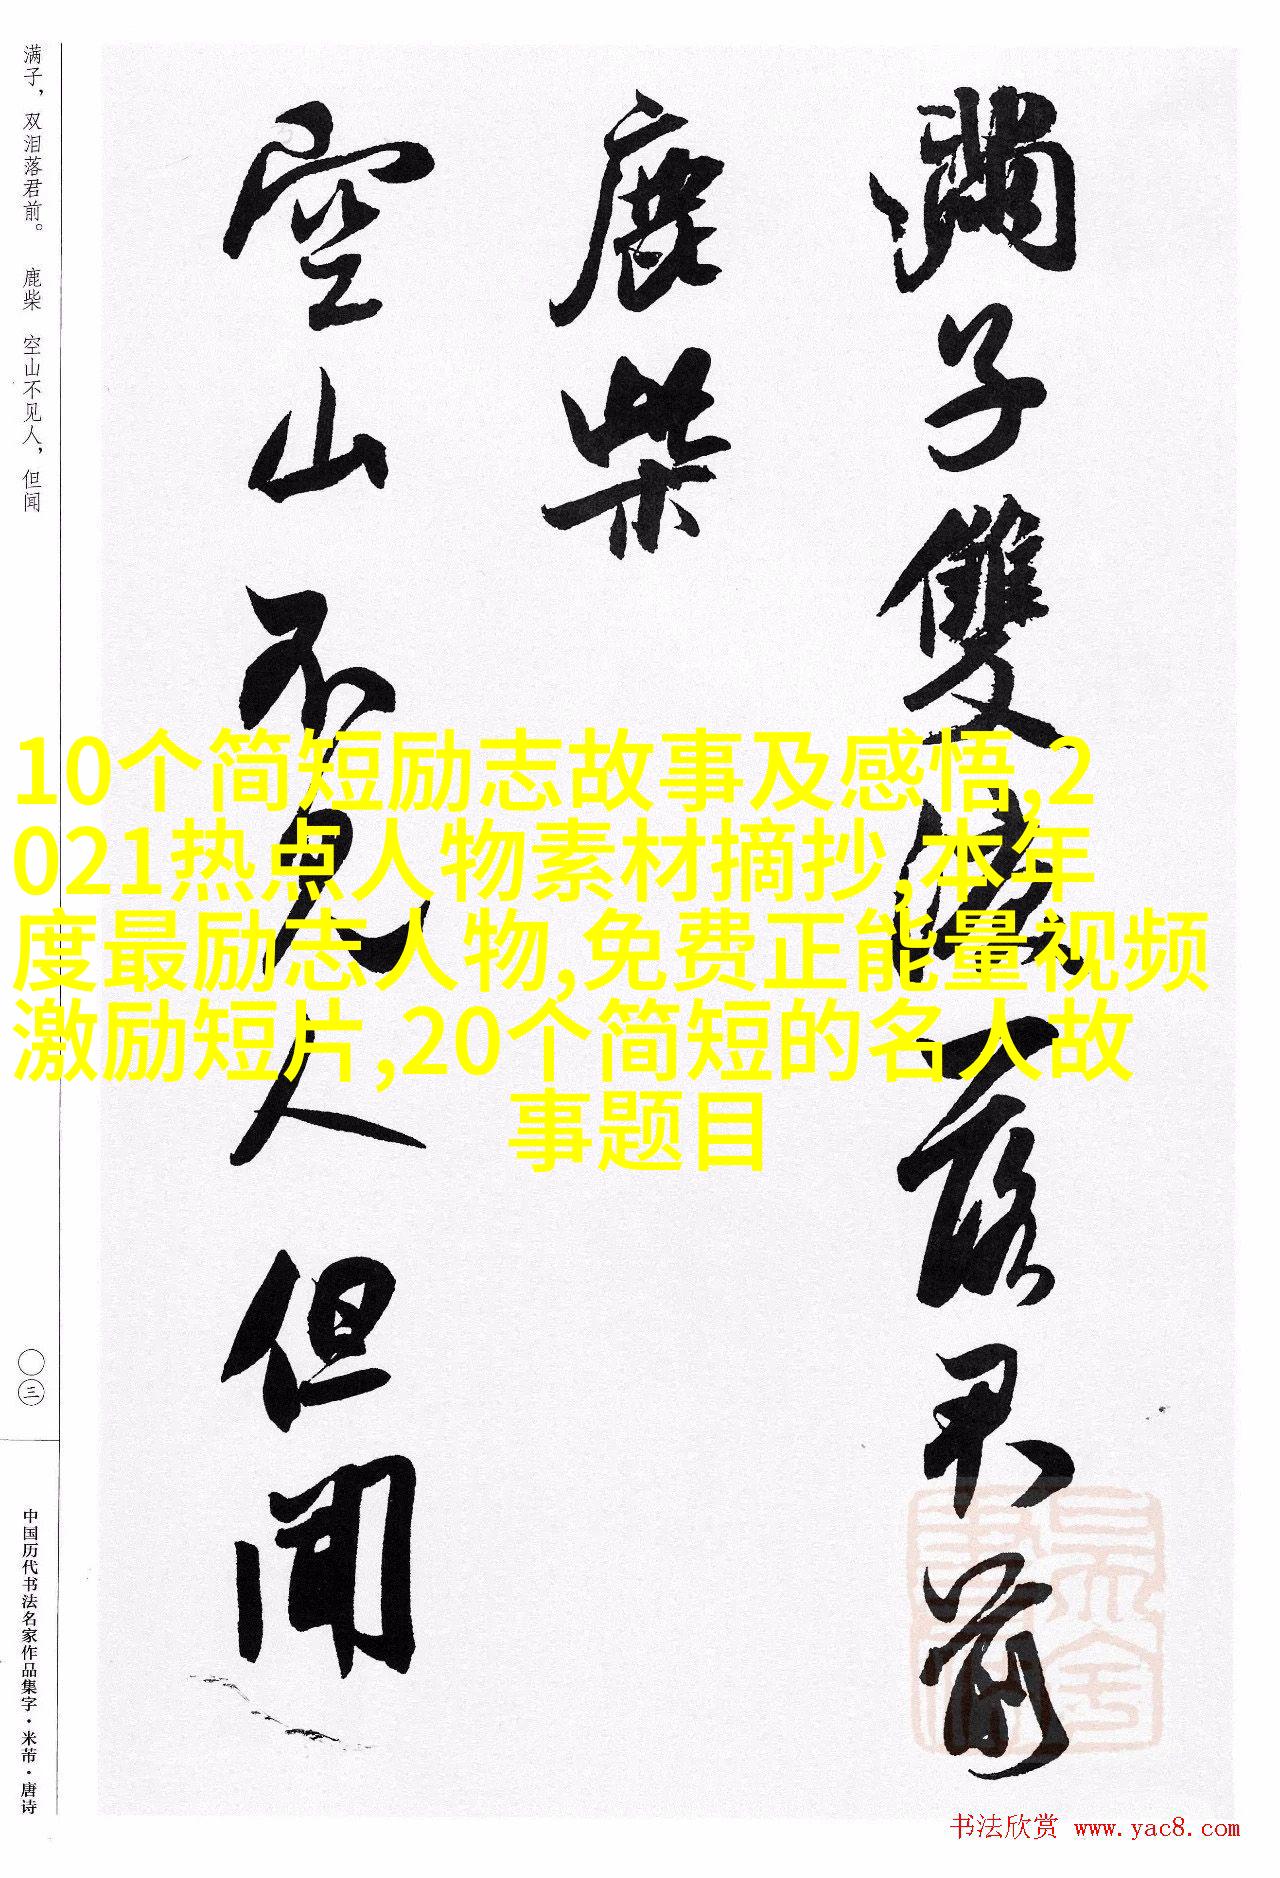 滿子雙淚落君前
鹿柴
空山不見人但聞
满子，双泪落君前。 鹿柴 空山不见人，但闻
10个简短励志故事及感悟,2
021热点人物素材摘抄,本年
度最励志人物,免费正能量视频
激励短片,20个简短的名人故
事题目
〇三
中国历代书法名家作品集字·米芾·唐诗
书法欣赏 www.yac8.com